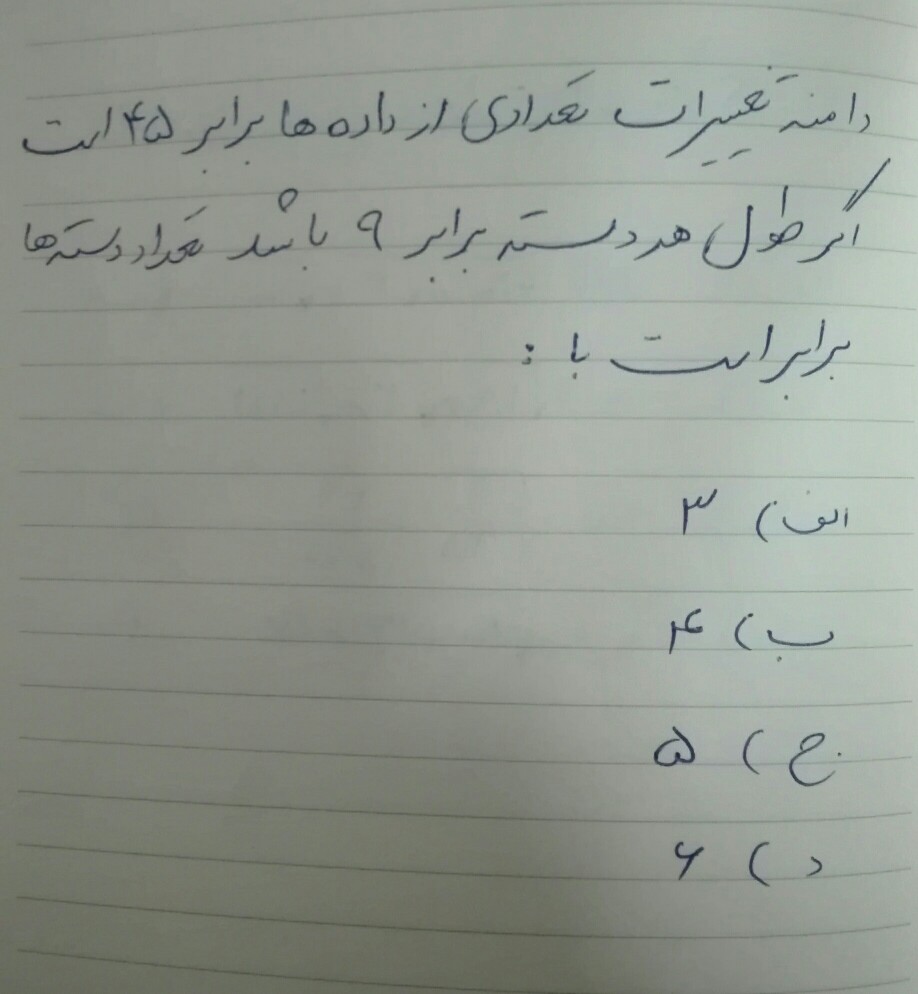 دامنه تغییرات تعدادی از داده ها برابر ۴۵ است
اگر طول هر دسته برابر ۹ باشد تعداد دسته ها
برابر است با :
الف) ۳
ب) ۴
ج) ۵
د) ۶